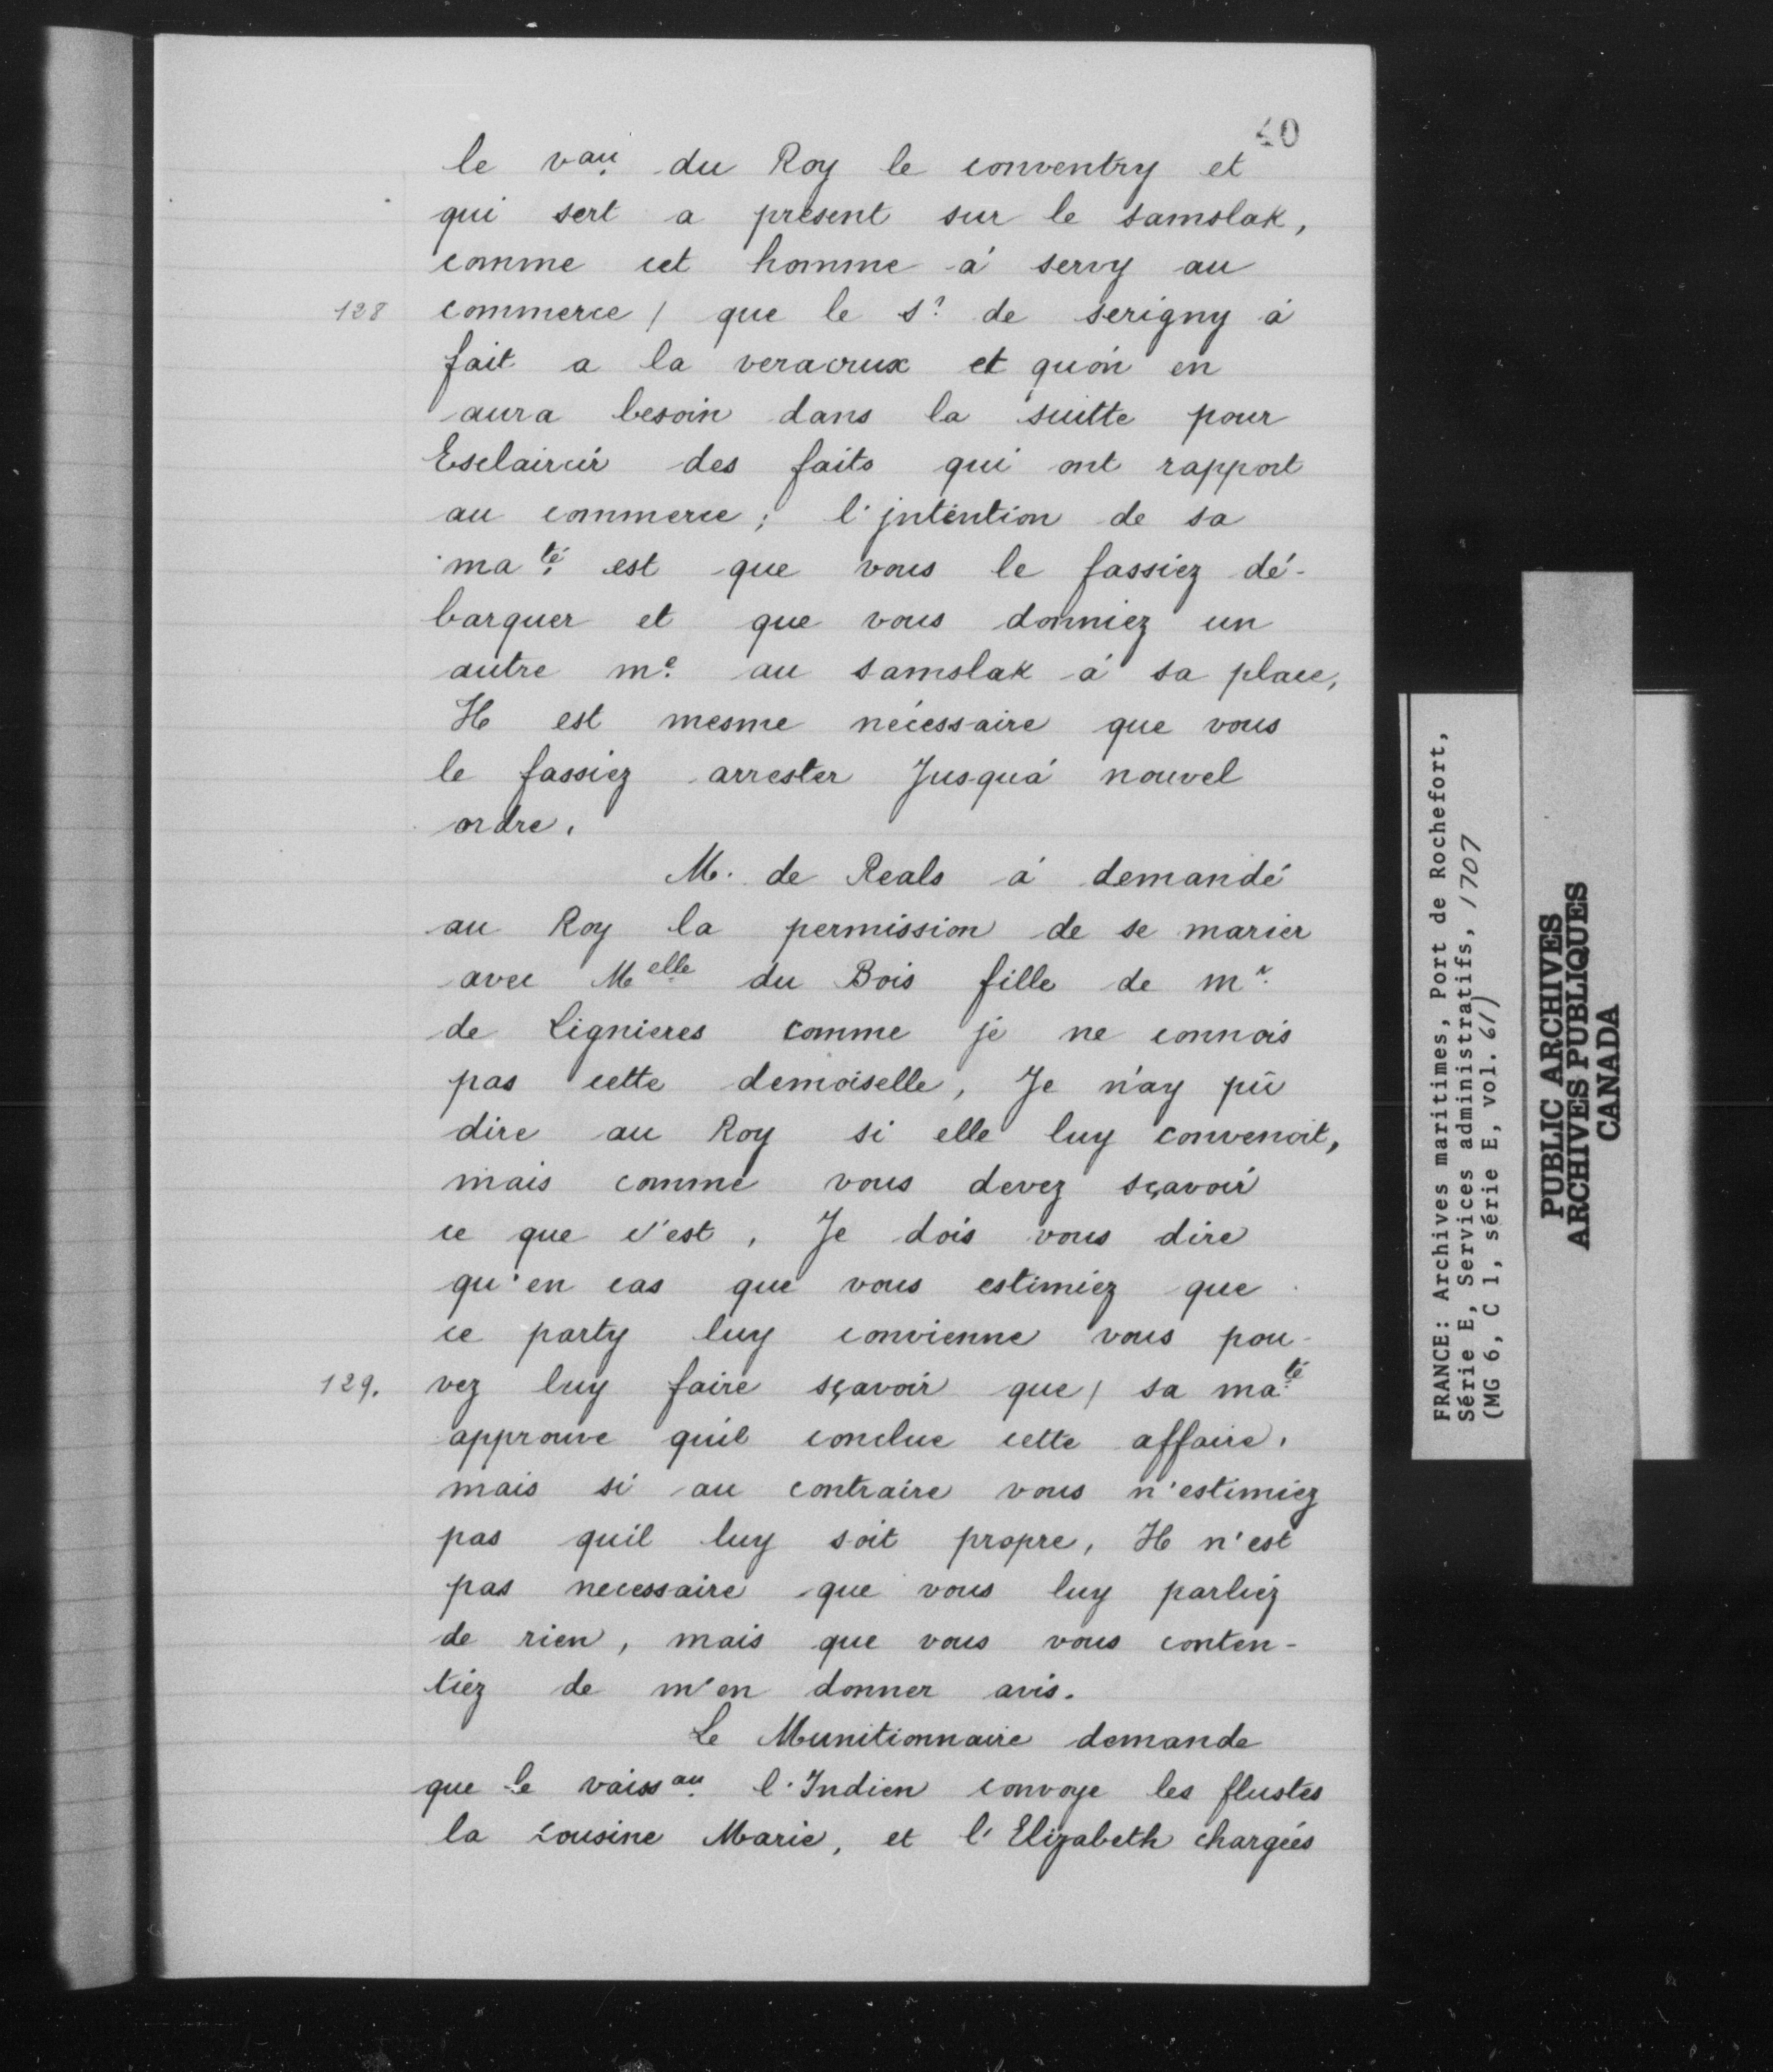 40
le vau. du Roy le conventry et
qui sert a présent sur le samslak,
comme cet homme à servy au
128 commerce / que le sr. de serigny à
fait a la veracrux et qu'on en
aura besoin dans la suitte pour
Esclaircir des faits qui ont rapport
au commerce; l'jntention de sa
maté. est que vous le fassiez dé-
barquer et que vous donniez un
autre me. au samslak à sa place,
Il est mesme nécessaire que vous
le fassiez arrester Jusqu'à nouvel
ordre.
M. de Reals à demandé
au Roy la permission de se marier
avec Melle du Bois fille de mr.
de Lignieres comme je ne connois
pas cette demoiselle, Je n'ay pû
dire au Roy si elle luy convenoit,
mais comme vous devez sçavoir
ce que c'est, Je dois vous dire
qu'en cas que vous estimiez que
ce party luy convienne vous pou-
129. vez luy faire sçavoir que / sa maté.
approuve qu'il conclue cette affaire.
mais si au contraire vous n'estimiez
pas qu'il luy soit propre, Il n'est
pas necessaire que vous luy parliez
de rien, mais que vous vous conten-
tiez de m'en donner avis.
Le Munitionnaire demande
que le vaissau. l'Indien convoye les flustes
la Cousine Marie, et l'Elizabeth chargées
FRANCE: Archives maritimes, Port de Rochefort,
Série E, Services administratifs, 1707
(MG 6, C 1, série E, vol. 61)
PUBLIC ARCHIVES
ARCHIVES PUBLIQUES
CANADA